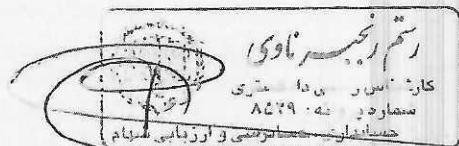 رستم رنجبر ناوی
کارشناس رسمی دادگستری
شماره پروانه: ۸۴۲۹
حسابداری، حسابرسی و ارزیابی سهام